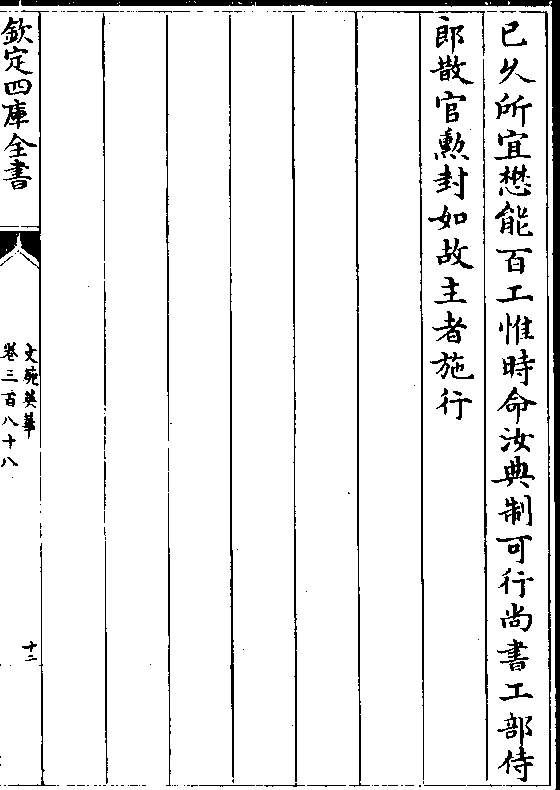 已久所宜懋能百工惟時命汝典制可行尚書工部侍
郎散官勲封如故主者施行
欽定四庫全書
文苑英華
卷三百八十八
十二